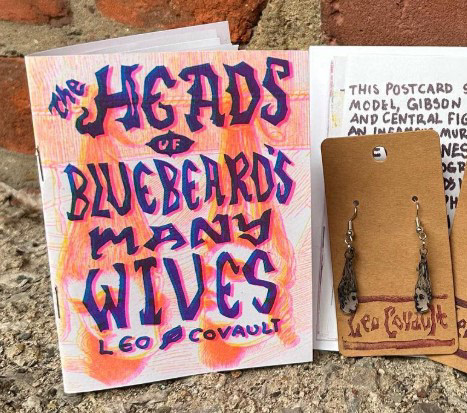 the HEADS
OF
BLUEBEARD'S
MANY
WIVES
LEO COVAULT
THIS POSTCARD
MODEL, GIBSON
AND CENTRAL
AN
Leo Covault